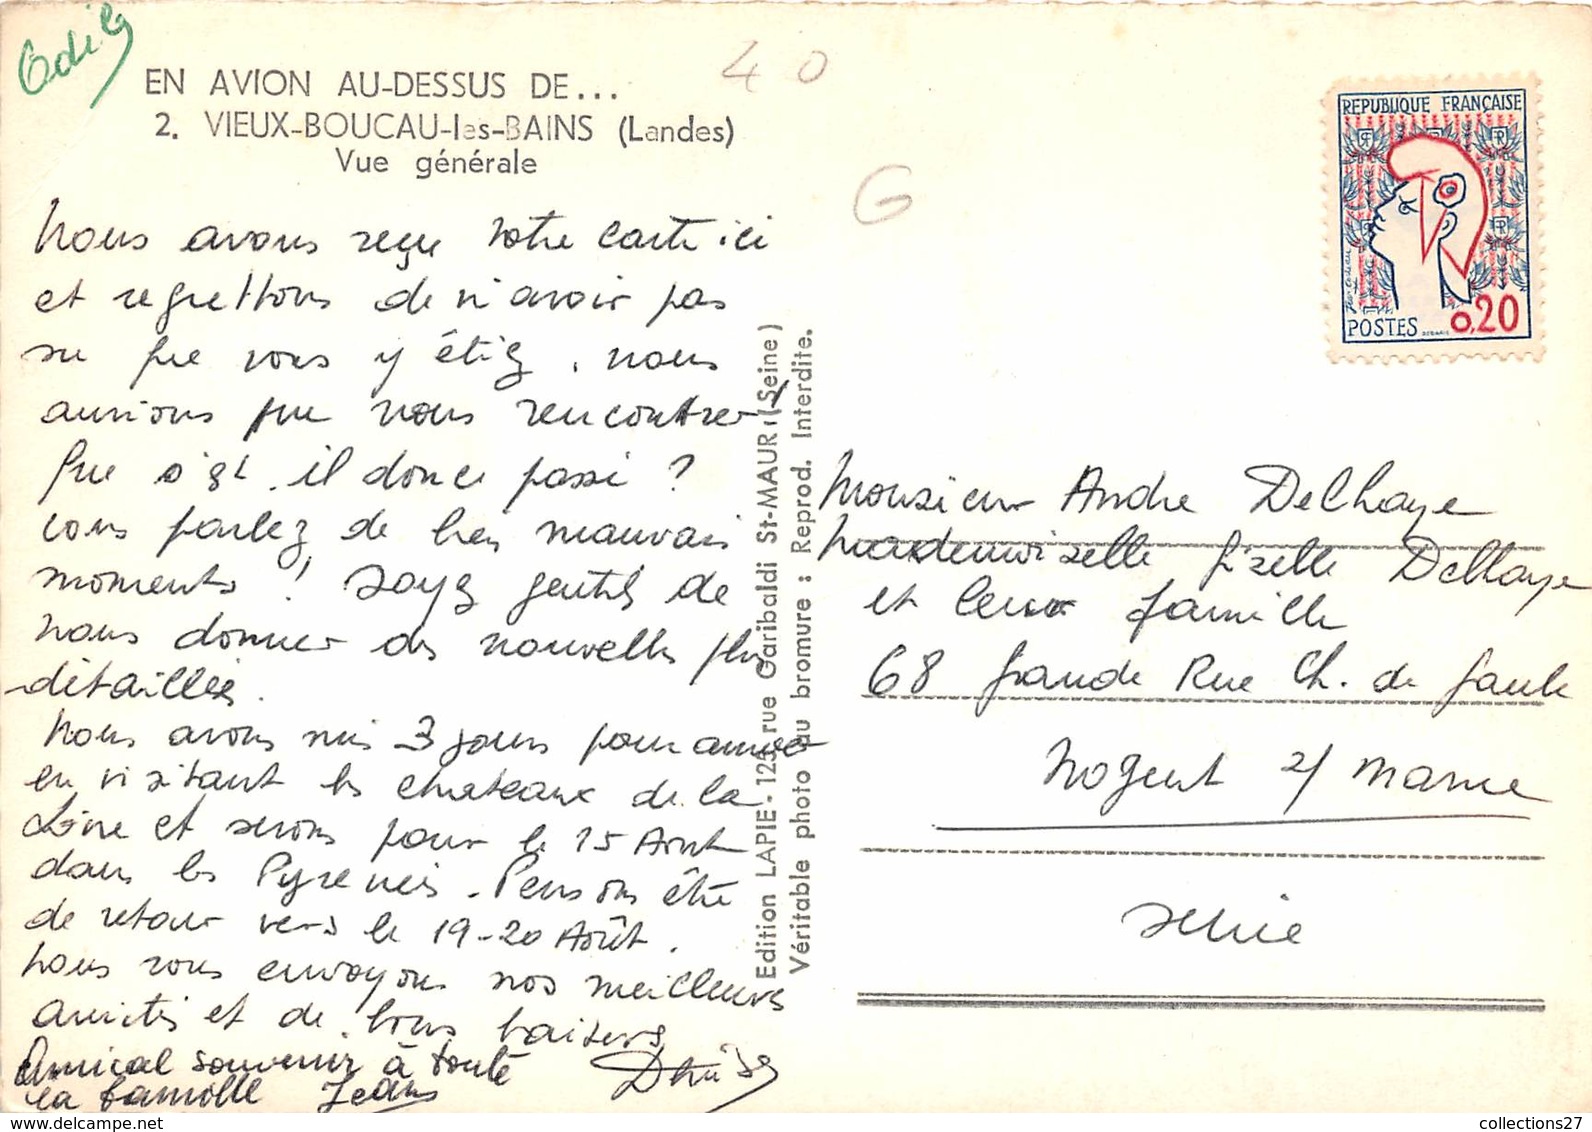 Odile
EN AVION AU-DESSUS DE...
40
2. VIEUX-BOUCAU-les-BAINS (Landes)
Vue générale
G
REPUBLIQUE FRANÇAISE
POSTES 0,20
Nous avons reçu votre carte ici
et regrettons de n'avoir pas
su que vous y étiez, nous
aurions pu nous rencontrer!
Que s'est-il donc passé ?
vous parlez de bien mauvais
moments ! Soyez gentils de
nous donner des nouvelles plus
détaillées.
Nous avons mis 3 jours pour arriver
en visitant les chateaux de la
Loire et serons pour le 15 Aout
dans les Pyrenées. Pensons être
de retour vers le 19-20 Août.
Nous vous envoyons nos meilleures
amitiés et de bons baisers,
Amical souvenir à toute
la famille Jean
Denise
Edition LAPIE - 125, rue Garibaldi St-MAUR (Seine)
Véritable photo au bromure : Reprod. Interdite.
Monsieur Andre Delhaye
Mademoiselle Gizelle Delhaye
et leur famille
68 Grande Rue Ch. de Gaule
Nogent s/ Marne
Seine
collections27